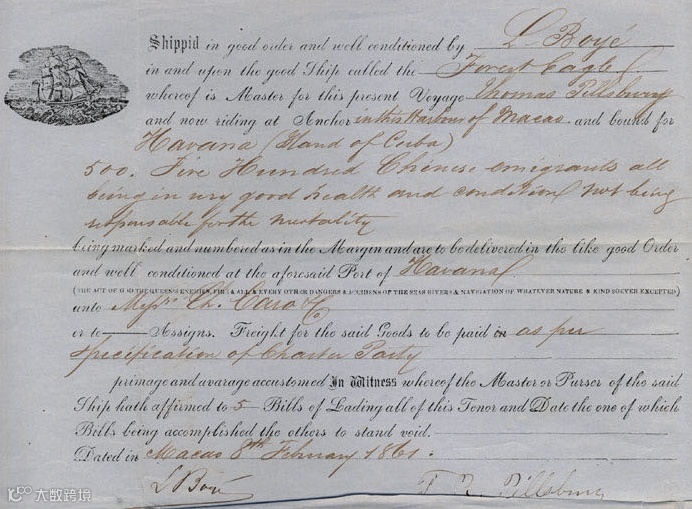 Shippid in good order and well conditioned by L Boyé
in and upon the good Ship called the Forest Eagle
whereof is Master for this present Voyage Thomas Pillsbury
and now riding at Anchor in this Harbour of Macao and bound for
Havana (Island of Cuba)
500. Five Hundred Chinese emigrants all
being in very good health and condition not being
responsable for the mortality
being marked and numbered as in the Margin and are to be delivered in the like good Order
and well conditioned at the aforesaid Port of Havana
(THE ACT OF GOD THE QUEEN'S ENEMIES, FIRE & ALL & EVERY OTHER DANGERS & ACCIDENS OF THE SEAS RIVERS & NAVIGATION OF WHATEVER NATURE & KIND SOEVER EXCEPTED)
unto Messrs Ch. Caro & Co
or to Assigns. Freight for the said Goods to be paid in as per
specification of Charter Party
primage and avarage accustomed In Witness whereof the Master or Purser of the said
Ship hath affirmed to 5 Bills of Lading all of this Tenor and Date the one of which
Bills being accomplished the others to stand void.
Dated in Macao 8th February 1861.
L Boyé T. Pillsbury
大数跨境